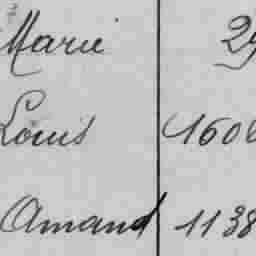 Marie 29
Louis 1600
Amand 1138